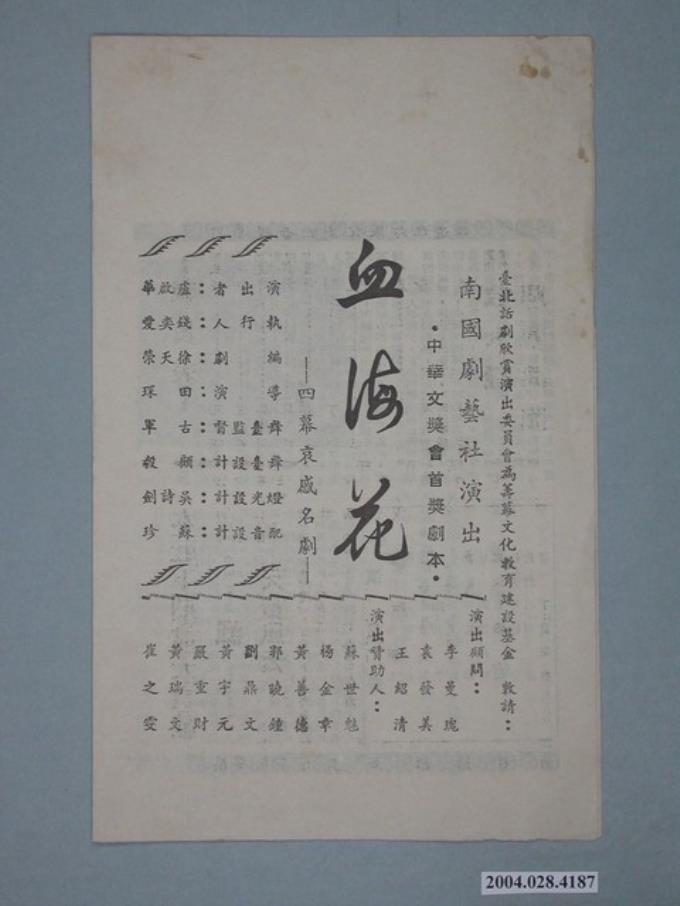 臺北話劇欣賞演出委員會為籌募文化教育建設基金 敦請：
南國劇藝社演出
•中華文獎會首獎劇本•
血海花
——四幕哀感名劇——
演出者：盧啟華
執行人：錢奕愛
編劇：徐天榮
導演：田琛
舞臺監督：古軍
舞臺設計：顧毅
燈光設計：吳詩劍
配音設計：蘇珍
演出顧問：
李曼瑰
袁發美
王紹清
演出贊助人：
蘇世魁
楊金章
黃善德
郭曉鐘
劉鼎文
黃宇元
嚴重財
黃瑞文
崔之雯
2004.028.4187